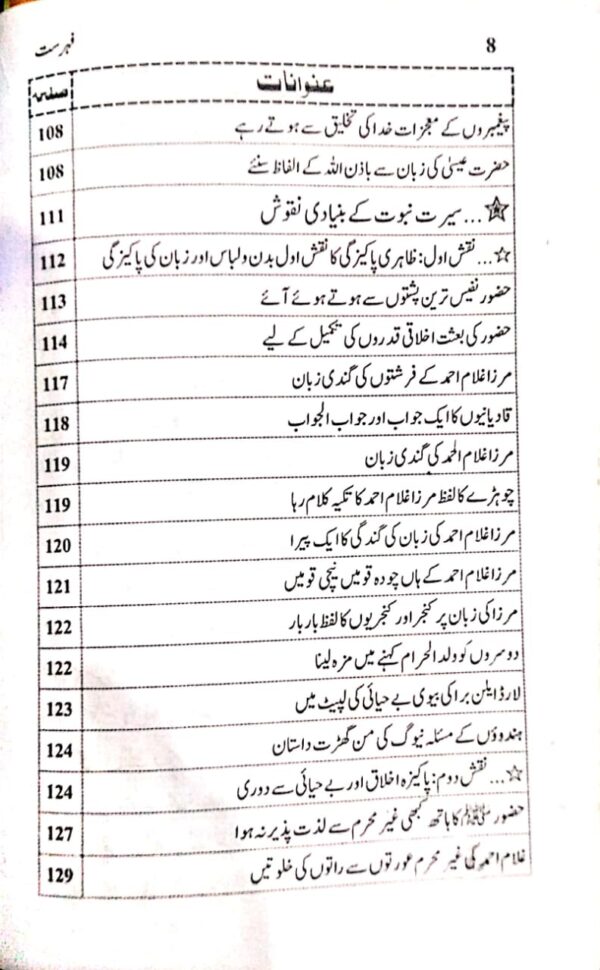 8 فہرست
عنوانات صفحہ
پیغمبروں کے معجزات خدا کی تخلیق سے ہوتے رہے 108
حضرت عیسیٰ کی زبان سے باذن اللہ کے الفاظ سنئے 108
☆... سیرت نبوت کے بنیادی نقوش 111
☆... نقش اول: ظاہری پاکیزگی کا نقش اول بدن و لباس اور زبان کی پاکیزگی 112
حضور نفیس ترین پشتوں سے ہوتے ہوئے آئے 113
حضور کی بعثت اخلاقی قدروں کی تکمیل کے لیے 114
مرزا غلام احمد کے فرشتوں کی گندی زبان 117
قادیانیوں کا ایک جواب اور جواب الجواب 118
مرزا غلام الحمد کی گندی زبان 119
چوہڑے کا لفظ مرزا غلام احمد کا تکیہ کلام رہا 119
مرزا غلام احمد کی زبان کی گندگی کا ایک پیرا 120
مرزا غلام احمد کے ہاں چودہ قومیں نیچی قومیں 121
مرزا کی زبان پر کنجر اور کنجریوں کا لفظ بار بار 122
دوسروں کو ولد الحرام کہنے میں مزہ لینا 122
لارڈ ایلن برا کی بیوی بے حیائی کی لپیٹ میں 123
ہندوؤں کے مسئلہ نیوگ کی من گھڑت داستان 124
☆... نقش دوم: پاکیزہ اخلاق اور بے حیائی سے دوری 124
حضور ﷺ کا ہاتھ کبھی غیر محرم سے لذت پذیر نہ ہوا 127
غلام احمد کی غیر محرم عورتوں سے راتوں کی خلوتیں 129